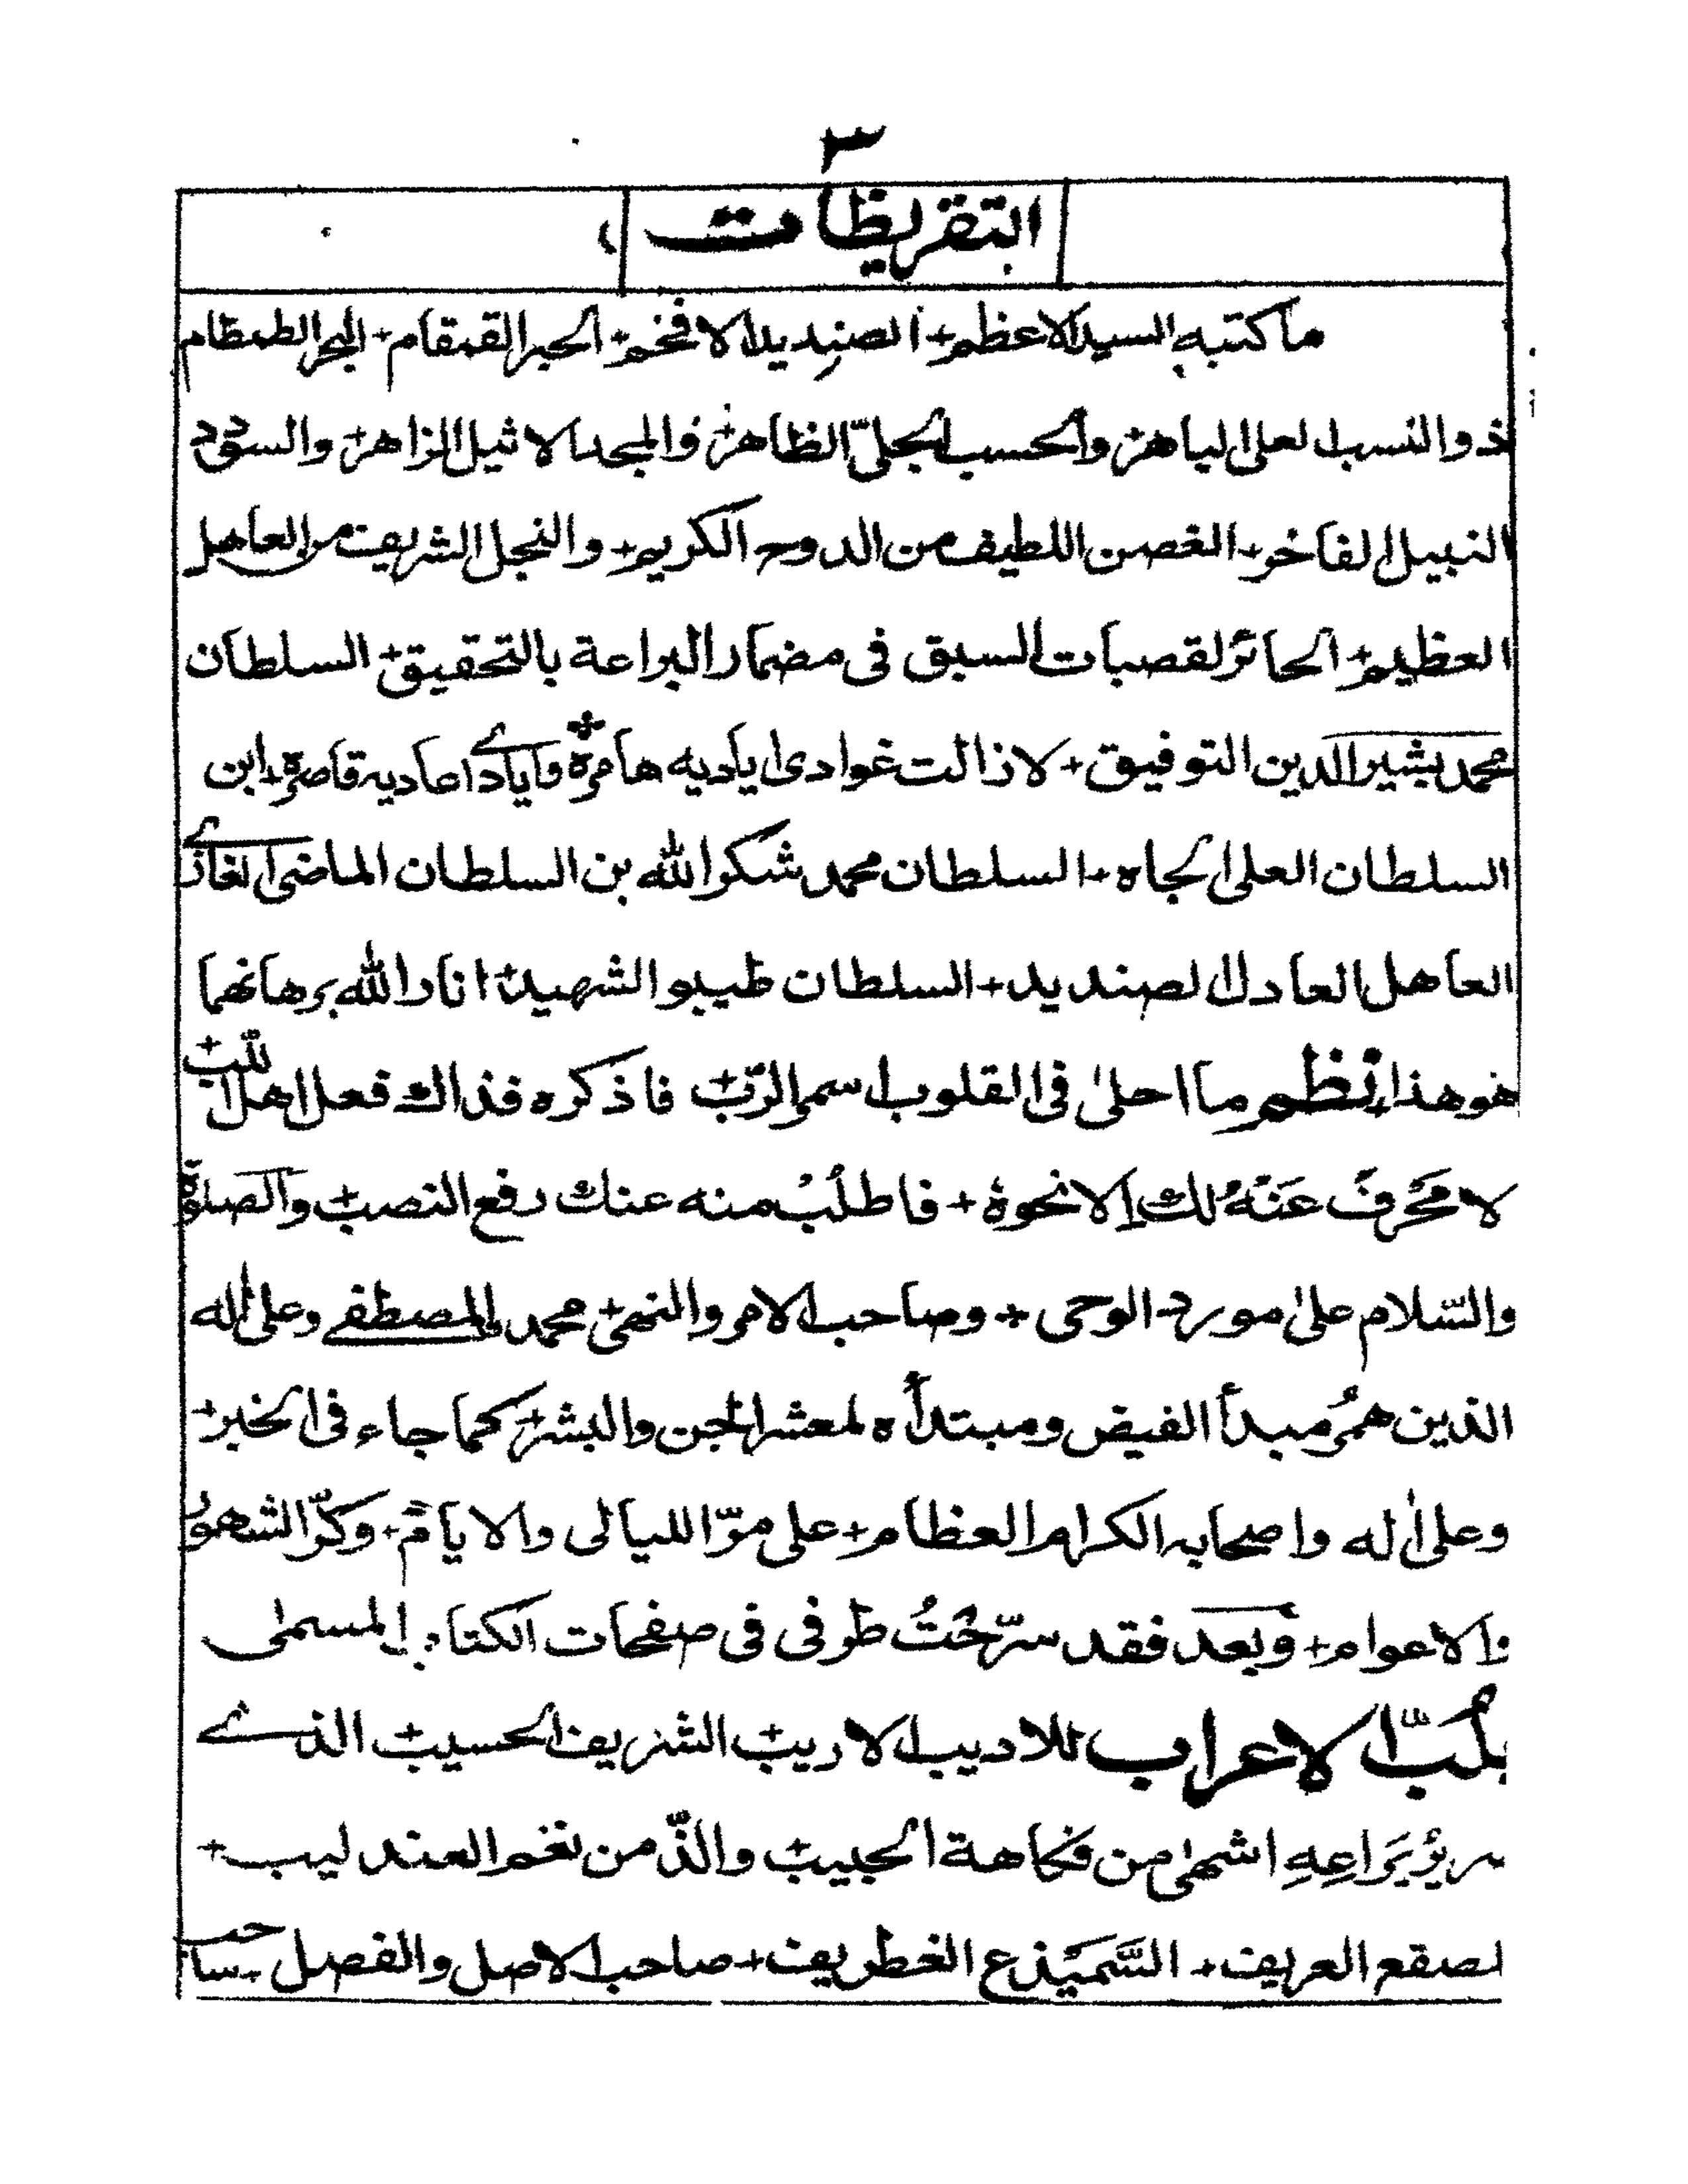 ٣
التقريظات
ما كتبه السيد الاعظم + الصنديد الافخم + الحبر القمقام + البحر الطمطام
ذو النسب العلى الباهر + والحسب الجلىّ الظاهر + والمجد الاثيل الزاهر + والسودد
النبيل الفاخر + الغصن اللطيف من الدوح الكريم + والنجل الشريف من العاهل
العظيم + الحائز لقصبات السبق فى مضمار البراعة بالتحقيق + السلطان
محمد بشير الدين التوفيق + لا زالت غوادى اياديه هامرة + وايادے اعاديه قاصرة + ابن
السلطان العلى الجاه + السلطان محمد شكر الله بن السلطان الماضى الغازے
العاهل العادل الصنديد + السلطان طيبو الشهيد + انار الله برهانهما
هو هذا نظم ما احلىٰ فى القلوب اسم الربّ + فاذكره فذاك فعل اهل اللبّ +
لا مَحْرفَ عَنْهُ لك اِلا نحوهٗ + فاطلُبْ منه عنك رفع النصب + والصلوة
والسّلام علىٰ مورد الوحى + وصاحب الامر والنهى + محمد المصطفے وعلىٰ اله
الذين همُ مبدأ الفيض ومبتدأه لمعشر الجن والبشر + كما جاء فى الخبر +
وعلىٰ اله واصحابه الكرام العظام + على مرّ الليالى والايام + وكرّ الشهور
والاعوام + وبعد فقد سرّحْتُ طرفى فى صفحات الكتاب المسمى
بلُبّ الاعراب للاديب الاريب + الشريف الحسيب + الذے
يَرَاعِهِ اشهىٰ من فكاهة الحبيب + والذّ من نغم العندليب +
لصقع العريف + السَّمَيْذع الغطريف + صاحب الاصل والفصل + ساحب